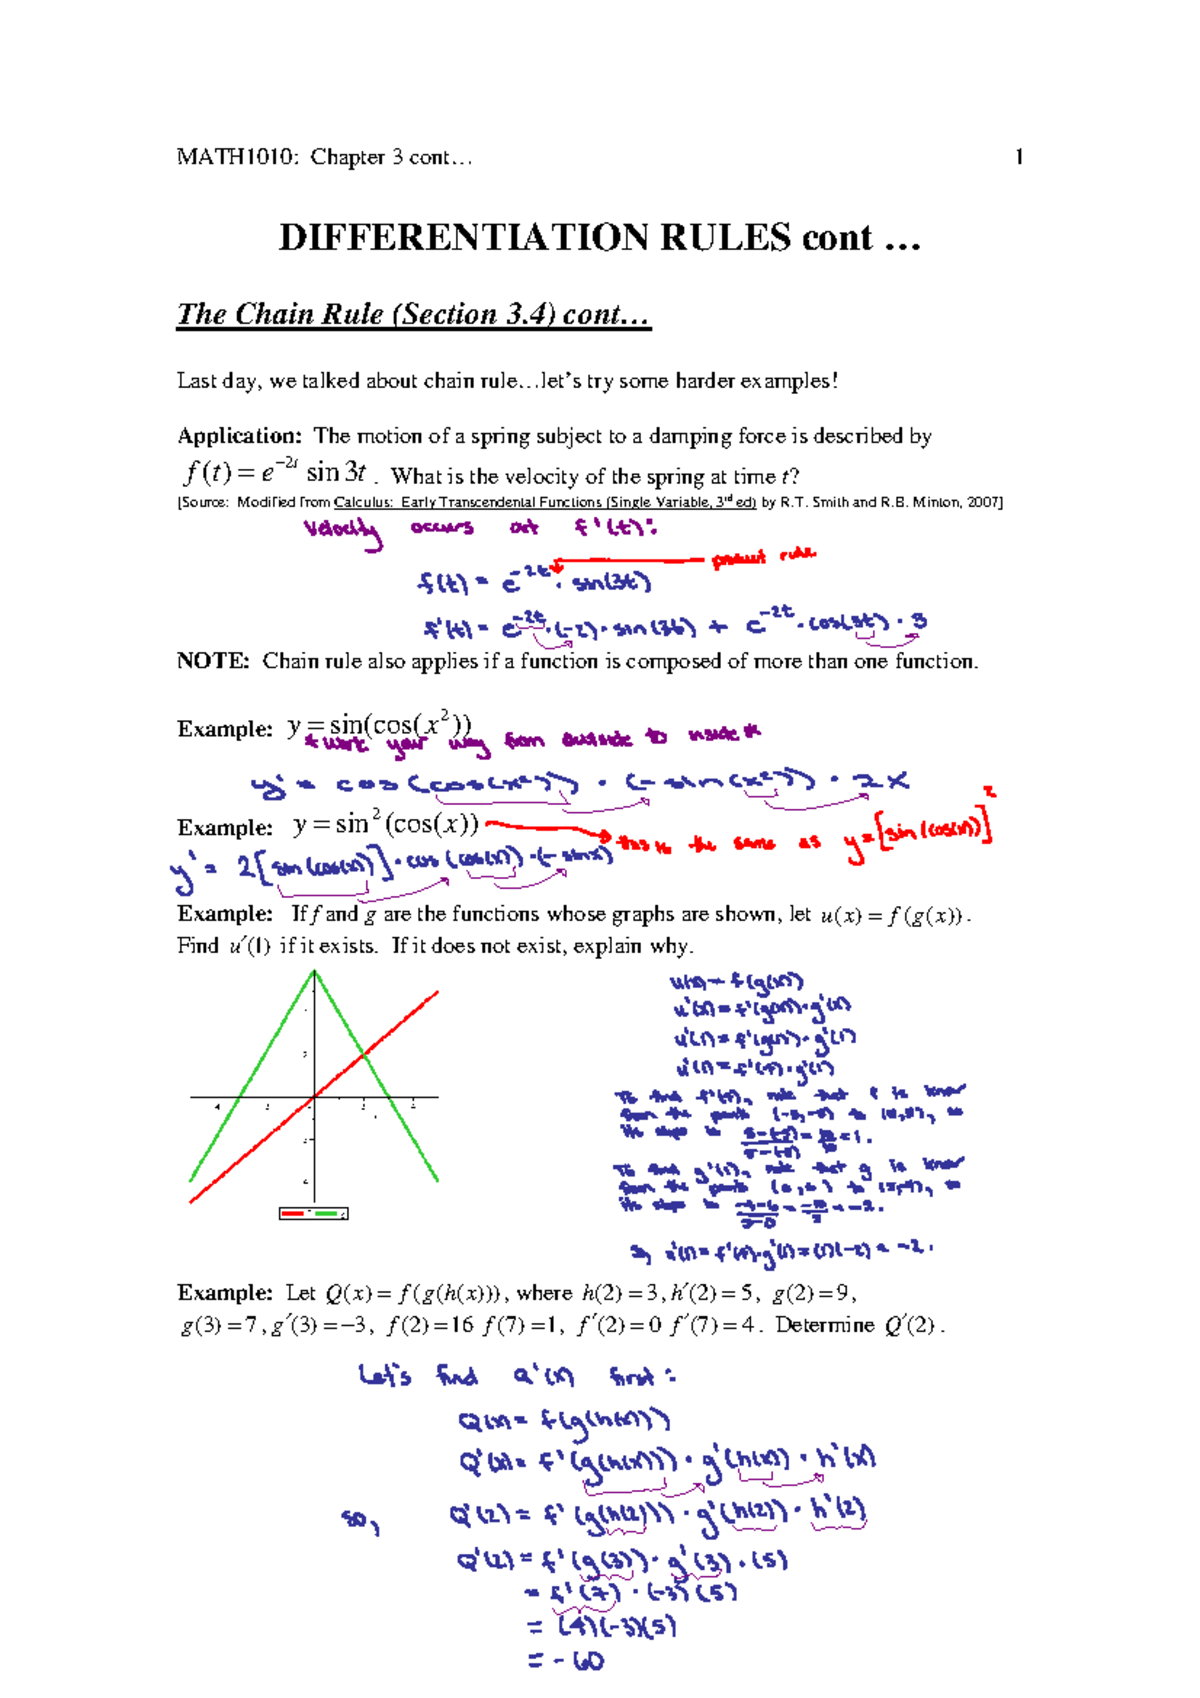 MATH1010: Chapter 3 cont… 1
DIFFERENTIATION RULES cont …
The Chain Rule (Section 3.4) cont…
Last day, we talked about chain rule…let's try some harder examples!
Application: The motion of a spring subject to a damping force is described by
f(t) = e^{-2t} sin 3t . What is the velocity of the spring at time t?
[Source: Modified from Calculus: Early Transcendental Functions (Single Variable, 3rd ed) by R.T. Smith and R.B. Minton, 2007]
Velocity occurs at f'(t):
product rule
f(t) = e^{-2t} · sin(3t)
f'(t) = e^{-2t} · (-2) · sin(3t) + e^{-2t} · cos(3t) · 3
NOTE: Chain rule also applies if a function is composed of more than one function.
Example: y = sin(cos(x²))
* work your way from outside to inside *
y' = cos(cos(x²)) · (-sin(x²)) · 2x
Example: y = sin²(cos(x)) this is the same as y = [sin(cos(x))]²
y' = 2[sin(cos(x))] · cos(cos(x)) · (-sinx)
Example: If f and g are the functions whose graphs are shown, let u(x) = f(g(x)).
Find u′(1) if it exists. If it does not exist, explain why.
u(x) = f(g(x))
u'(x) = f'(g(x)) · g'(x)
u'(1) = f'(g(1)) · g'(1)
To find f'( ), note that f is linear
from the points to , so
its slope is = 1.
To find g'(1), note that g is linear
from the points to , so
its slope is = -2.
so, u'(1) = · g'(1) = (1)(-2) = -2.
Example: Let Q(x) = f(g(h(x))), where h(2) = 3, h′(2) = 5, g(2) = 9,
g(3) = 7, g′(3) = −3, f(2) = 16 f(7) = 1, f′(2) = 0 f′(7) = 4. Determine Q′(2).
Let's find Q'(x) first:
Q(x) = f(g(h(x)))
Q'(x) = f'(g(h(x))) · g'(h(x)) · h'(x)
so, Q'(2) = f'(g(h(2))) · g'(h(2)) · h'(2)
Q'(2) = f'(g(3)) · g'(3) · (5)
= f'(7) · (-3)(5)
= (4)(-3)(5)
= -60